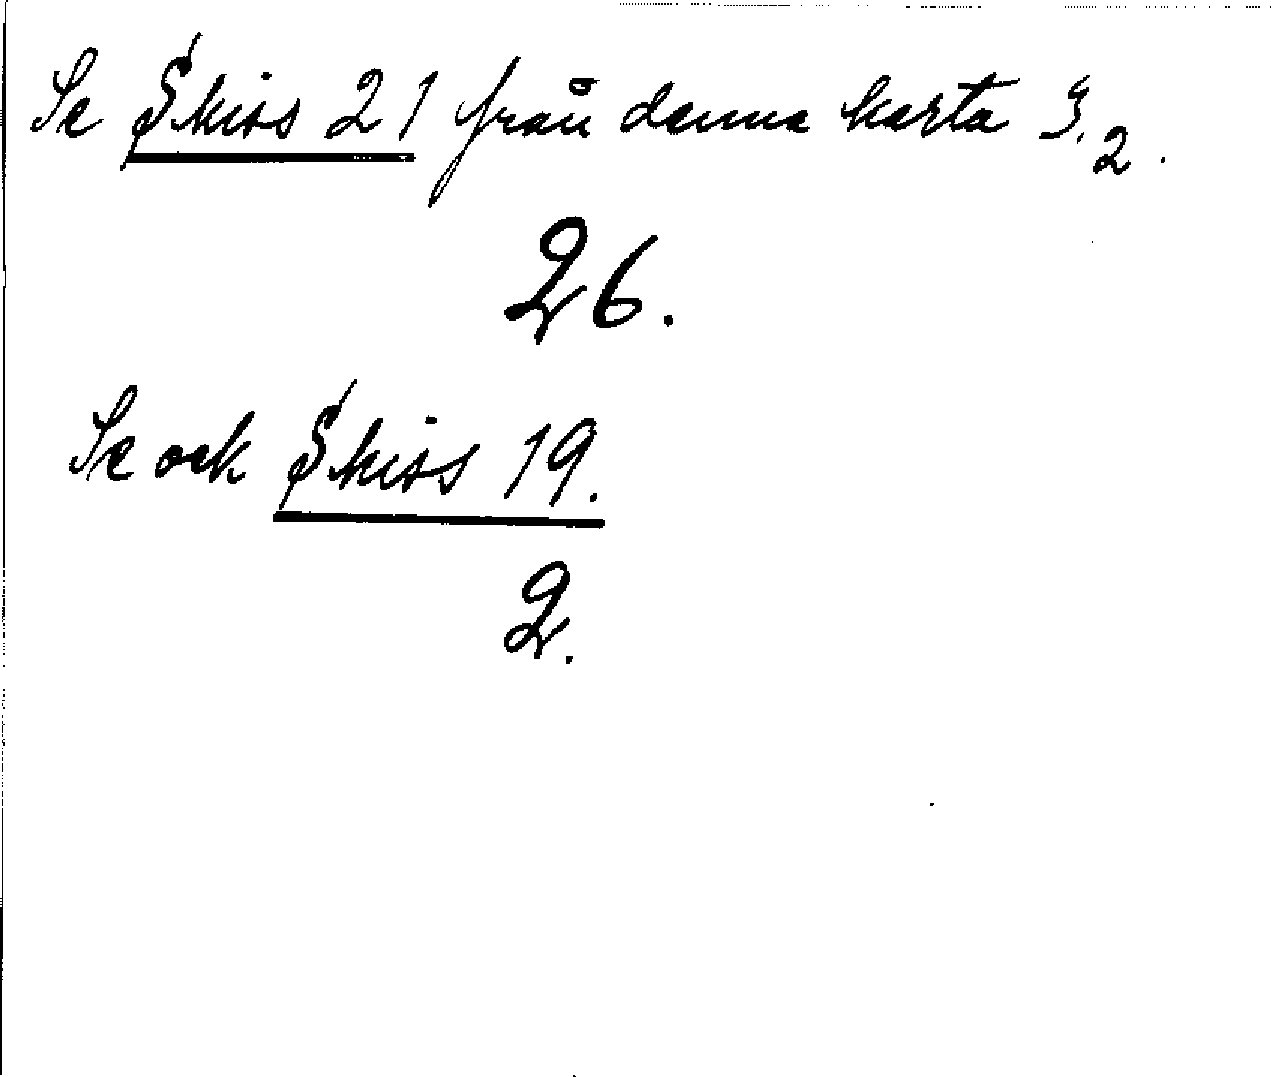 Se Skiss 21 från denna karta 3.2.
26.
Se ock Skiss 19.
2.